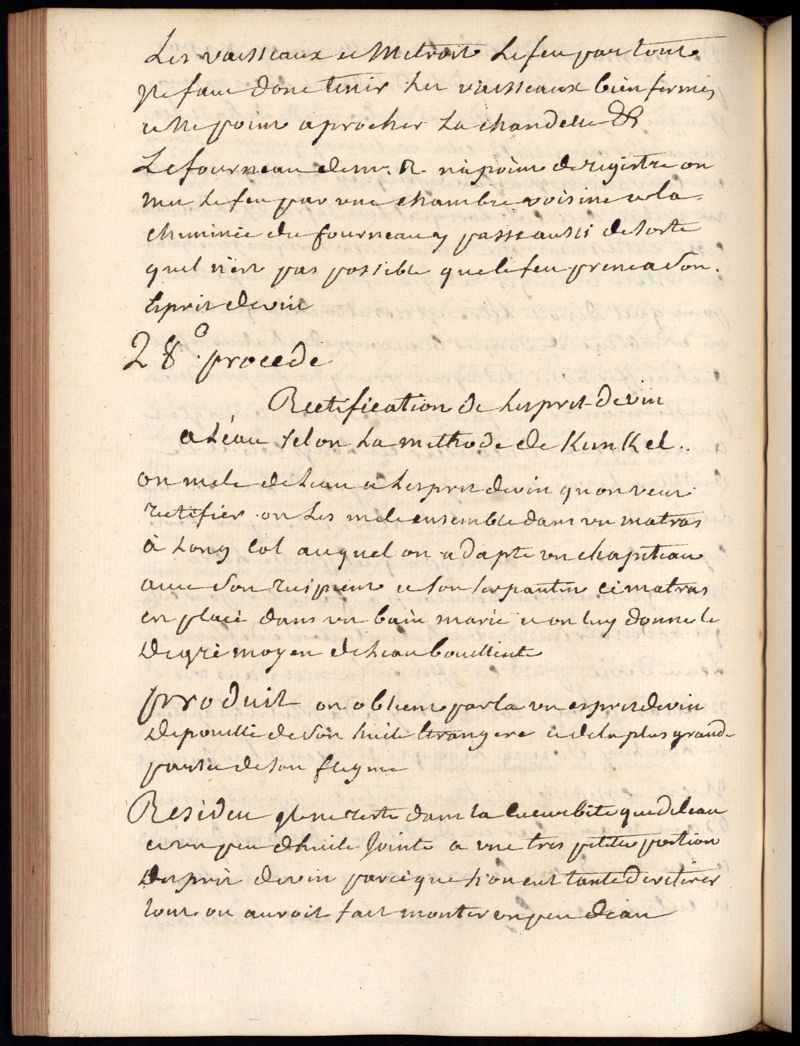 Les vaisseaux et Metroit le feu partout
Il faut donc tenir les vaisseaux bien fermés
et Ne point aprocher La chandelle &
Le fourneau de mr. R. n'a point de registre on
met Le feu par une chambre voisine et la
cheminée du fourneau y passe aussi de sorte
quil n'est pas possible que le feu prene a son
Esprit de vin
28.° procede
Rectification de Lesprit de vin
a L'eau selon La methode de Kunkel..
on mele de Leau a Lesprit de vin qu on veut
rectifier on Les mele ensemble dans un matras
à Long Col auquel on adapte un chapiteau
avec son recipient et son serpantin ce matras
en placé dans un bain marie et on luy donne le
Degré moyen de Leau bouillente
produit on obtient par la un esprit de vin
Depouillé de son huile Etrangere et de la plus grande
partie de son flegme
Residu Il ne reste dans la Cucurbite que de leau
et un peu d'huile Jointe a une tres petite portion
Desprit de vin parce que si on eut tanté de retirer
tout on auroit fait monter un peu deau